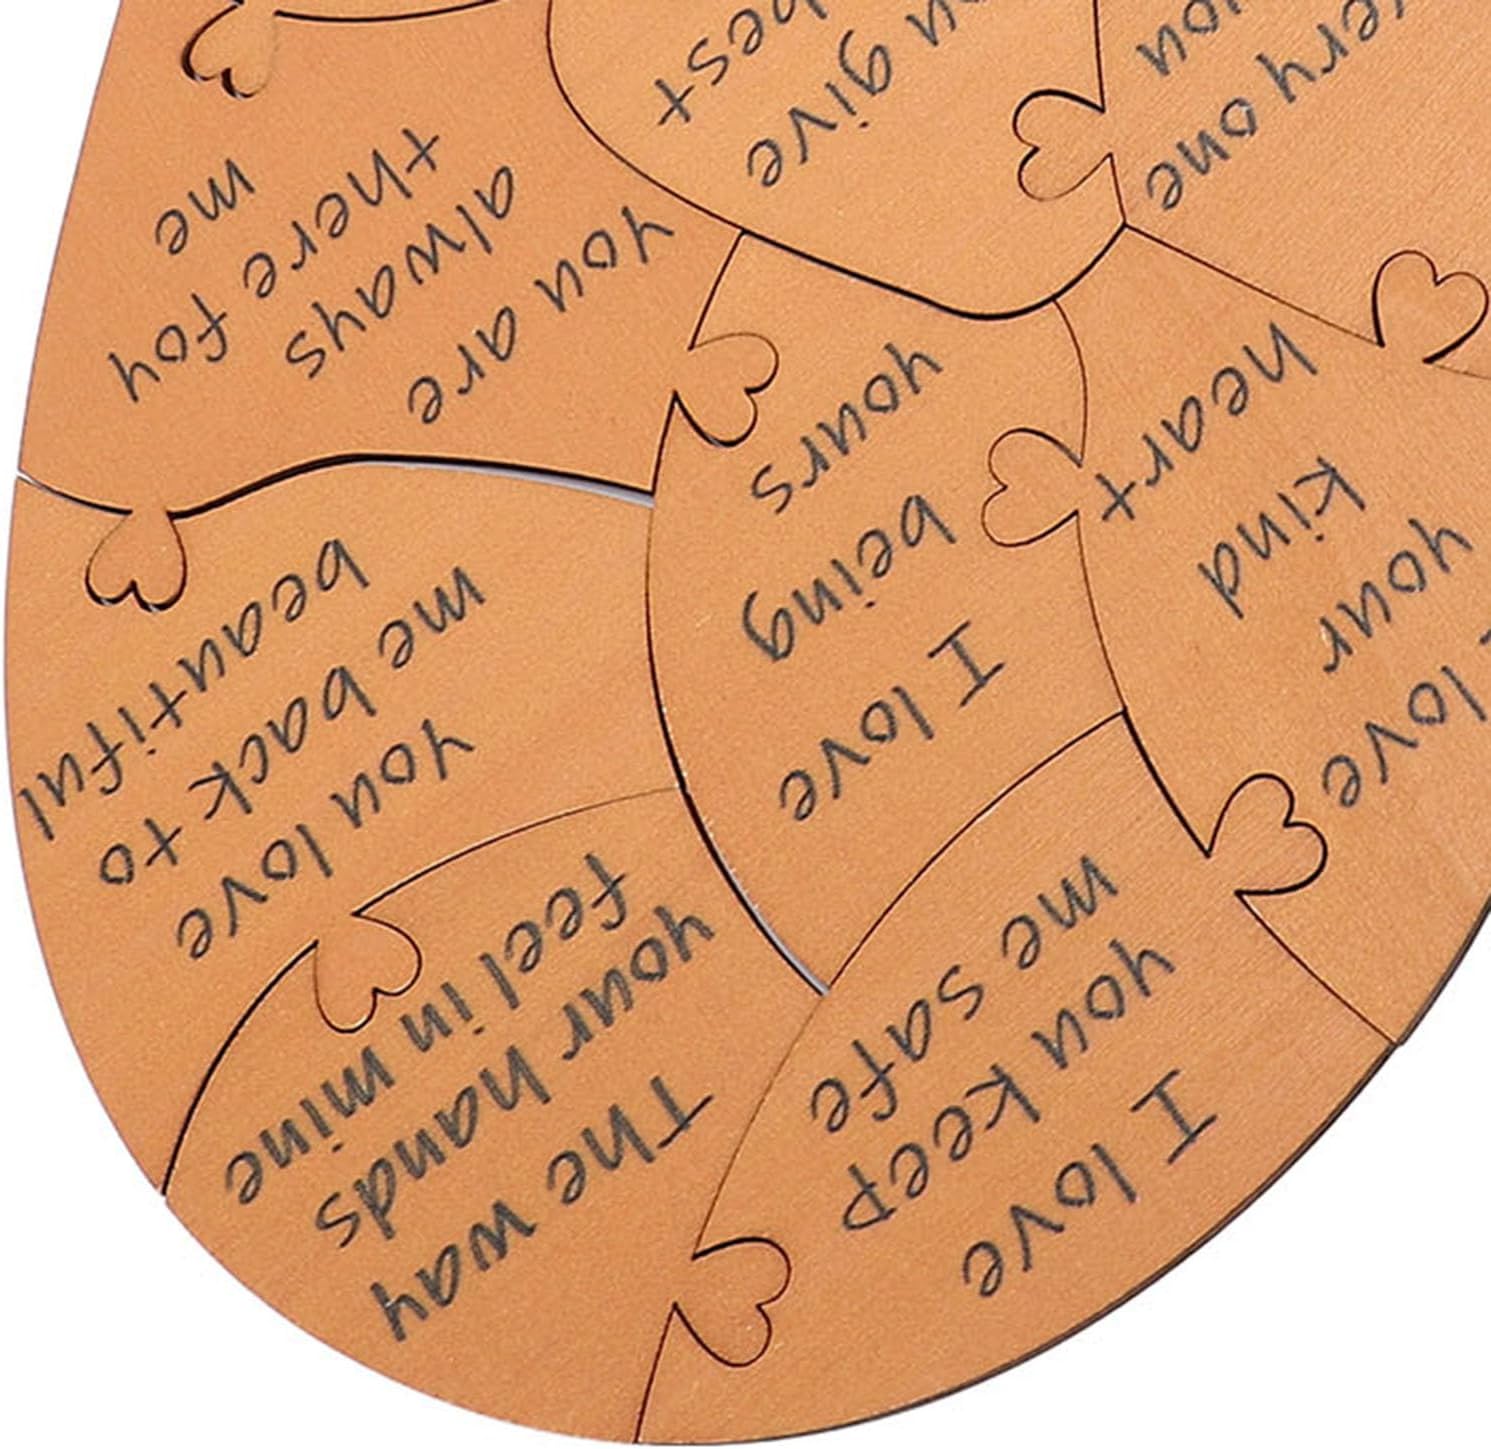 I love
you keep
me safe
The way
your hands
feel in mine
love
your
kind
heart
I love
being
yours
you love
me back to
beautiful
ery one
you
you give
best
you are
always
there foy
me